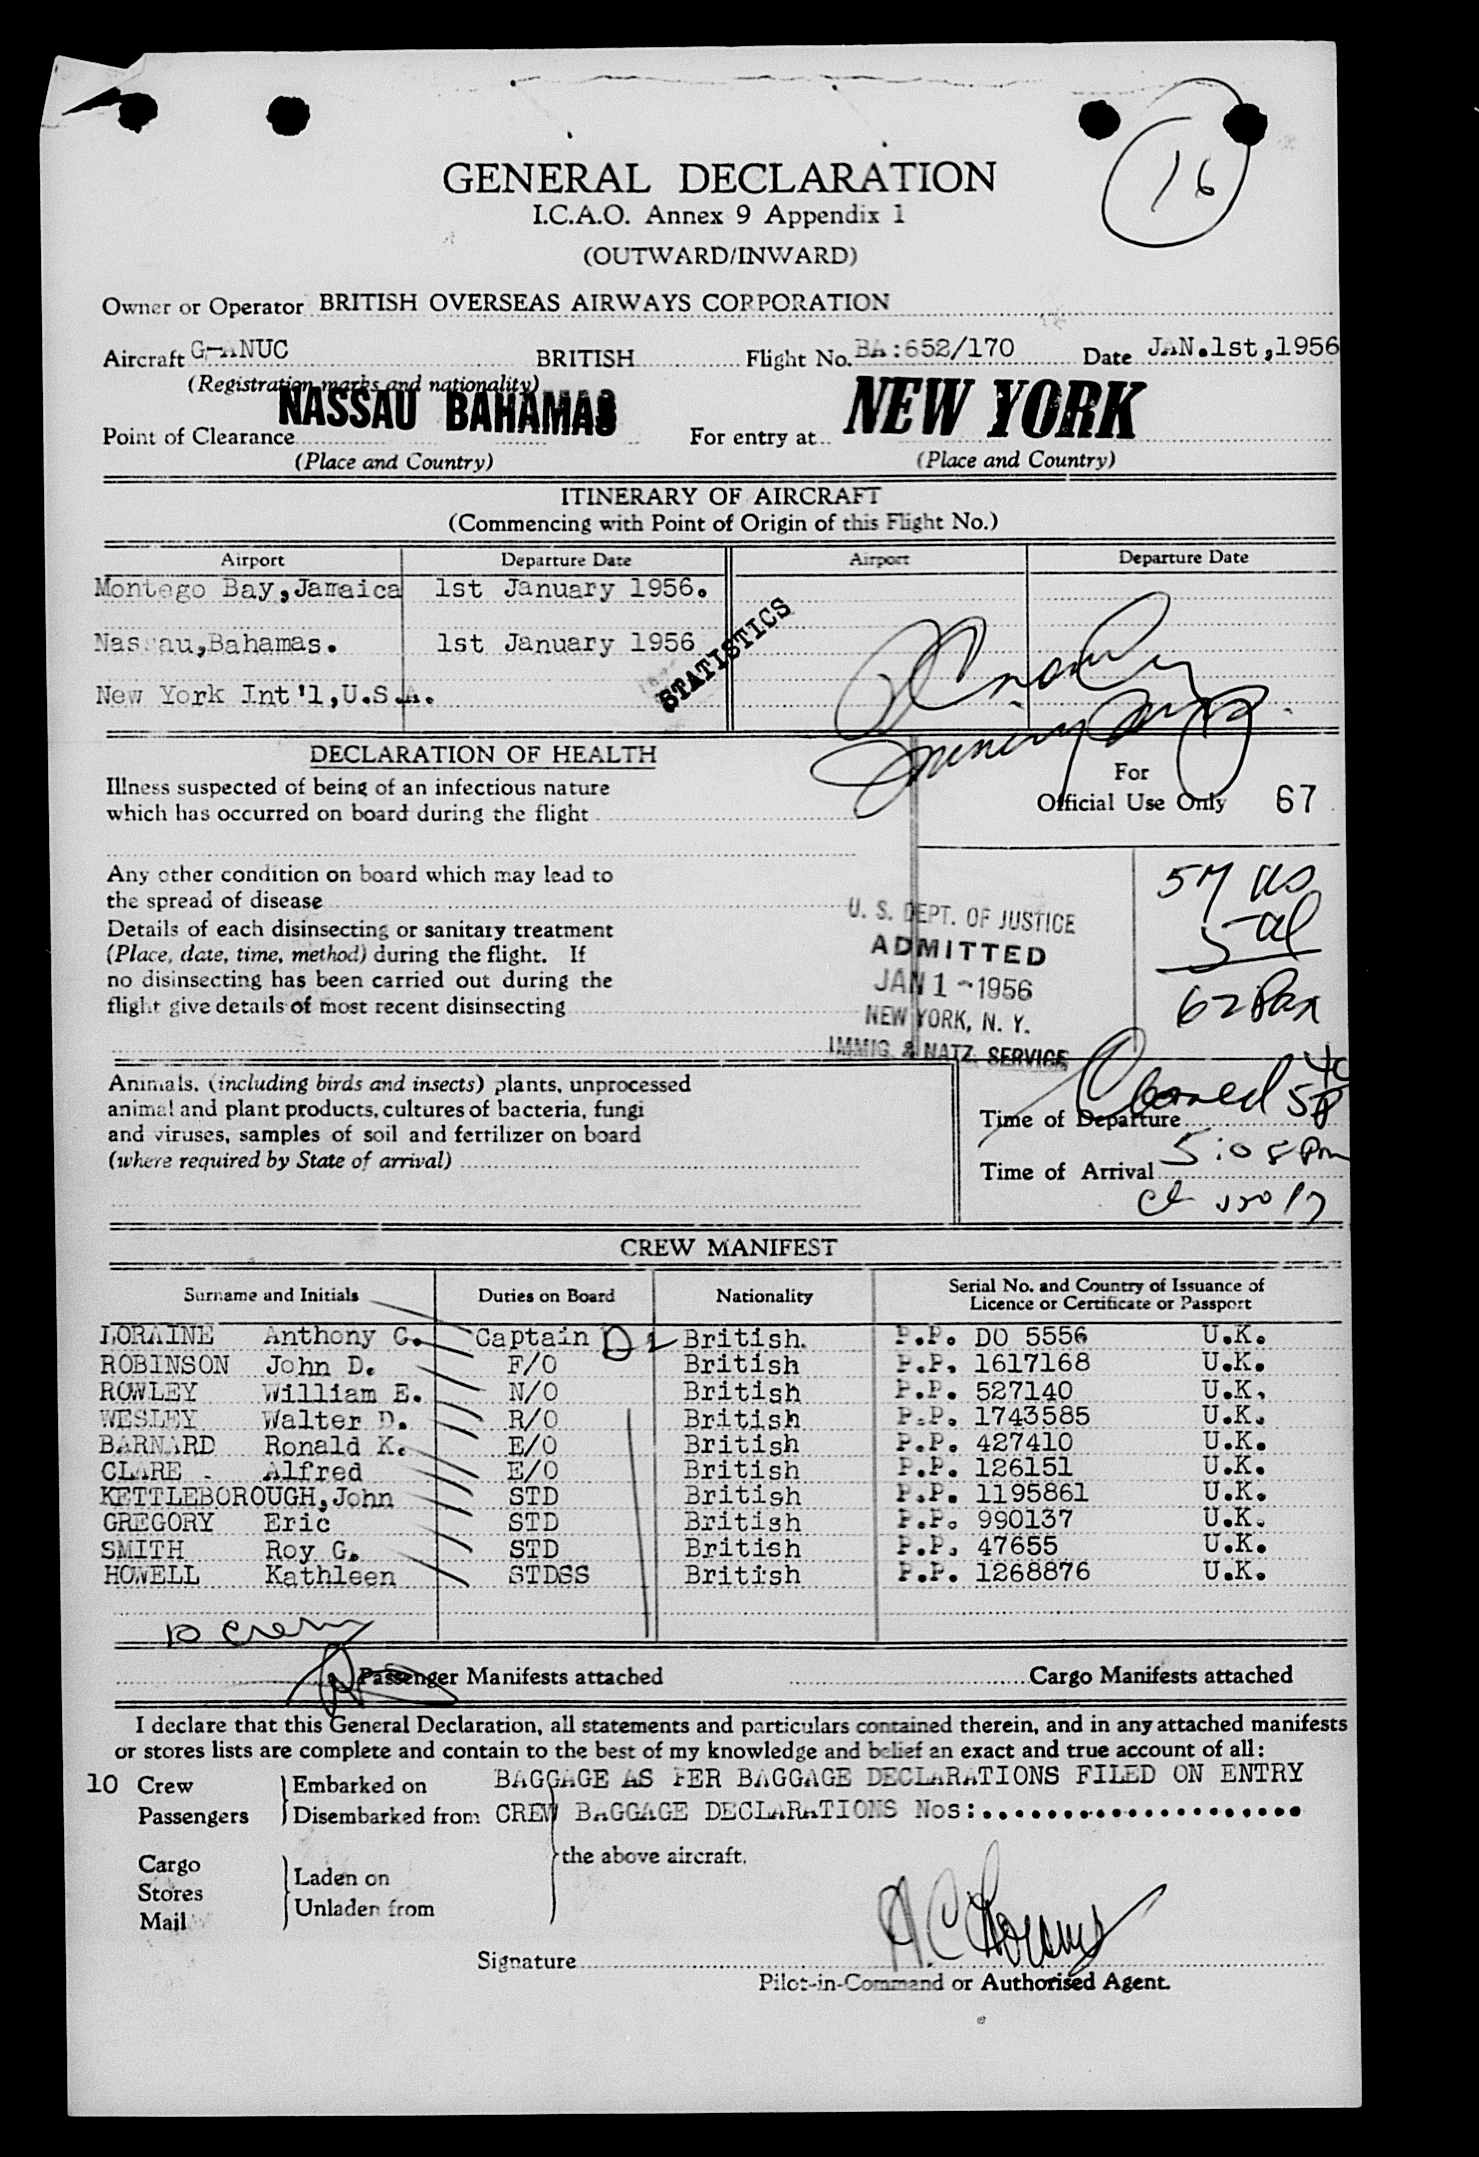 16
GENERAL DECLARATION
I.C.A.O. Annex 9 Appendix 1
(OUTWARD/INWARD)
Owner or Operator BRITISH OVERSEAS AIRWAYS CORPORATION
Aircraft G-ANUC BRITISH Flight No. BA:652/170 Date JAN.1st,1956
(Registration marks and nationality)
NASSAU BAHAMAS NEW YORK
Point of Clearance For entry at
(Place and Country) (Place and Country)
ITINERARY OF AIRCRAFT
(Commencing with Point of Origin of this Flight No.)
Airport Departure Date Airport Departure Date
Montego Bay,Jamaica 1st January 1956.
Nassau,Bahamas. 1st January 1956
STATISTICS
New York Int'l,U.S.A.
DECLARATION OF HEALTH
Illness suspected of being of an infectious nature
which has occurred on board during the flight
For
Official Use Only 67
Any other condition on board which may lead to
the spread of disease
Details of each disinsecting or sanitary treatment
(Place, date, time, method) during the flight. If
no disinsecting has been carried out during the
flight give details of most recent disinsecting
U. S. DEPT. OF JUSTICE
ADMITTED
JAN 1 - 1956
NEW YORK, N. Y.
IMMIG. & NATZ. SERVICE
57 US
5 al
62 Pax
Animals, (including birds and insects) plants, unprocessed
animal and plant products, cultures of bacteria, fungi
and viruses, samples of soil and fertilizer on board
(where required by State of arrival)
Time of Departure
Time of Arrival 5:05 Pm
CREW MANIFEST
Surname and Initials Duties on Board Nationality Serial No. and Country of Issuance of
Licence or Certificate or Passport
LORAINE Anthony C. Captain British. P.P. DO 5556 U.K.
ROBINSON John D. F/O British P.P. 1617168 U.K.
ROWLEY William E. N/O British P.P. 527140 U.K.
WESLEY Walter D. R/O British P.P. 1743585 U.K.
BARNARD Ronald K. E/O British P.P. 427410 U.K.
CLARE - Alfred E/O British P.P. 126151 U.K.
KETTLEBOROUGH,John STD British P.P. 1195861 U.K.
GREGORY Eric STD British P.P. 990137 U.K.
SMITH Roy G. STD British P.P. 47655 U.K.
HOWELL Kathleen STDSS British P.P. 1268876 U.K.
10 crew
Passenger Manifests attached Cargo Manifests attached
I declare that this General Declaration, all statements and particulars contained therein, and in any attached manifests
or stores lists are complete and contain to the best of my knowledge and belief an exact and true account of all:
10 Crew Embarked on BAGGAGE AS PER BAGGAGE DECLARATIONS FILED ON ENTRY
Passengers Disembarked from CREW BAGGAGE DECLARATIONS Nos:....................
the above aircraft.
Cargo Laden on
Stores
Mail Unladen from
Signature
Pilot-in-Command or Authorised Agent.